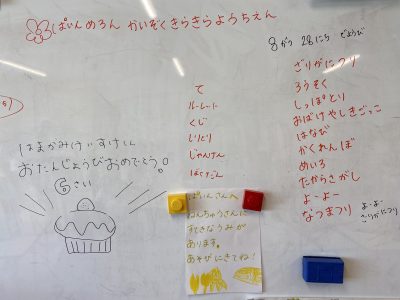 ぱいんめろん かいぞくきらきらようちえん
8がつ 28にち どようび
て
ルーレット
くじ
しりとり
じゃんけん
ばくだん
ざりがにつり
ろうそく
しっぽとり
おばけやしきごっこ
はなび
かくれんぼ
めいろ
たからさがし
よーよー
なつまつり
よーよー
ざりがにつり
はまかみけいすけくん
おたんじょうびおめでとう!
6さい
ぱいんさんへ
ねんちゅうさんに
すてきなうみが
あります。
あそびにきてね!